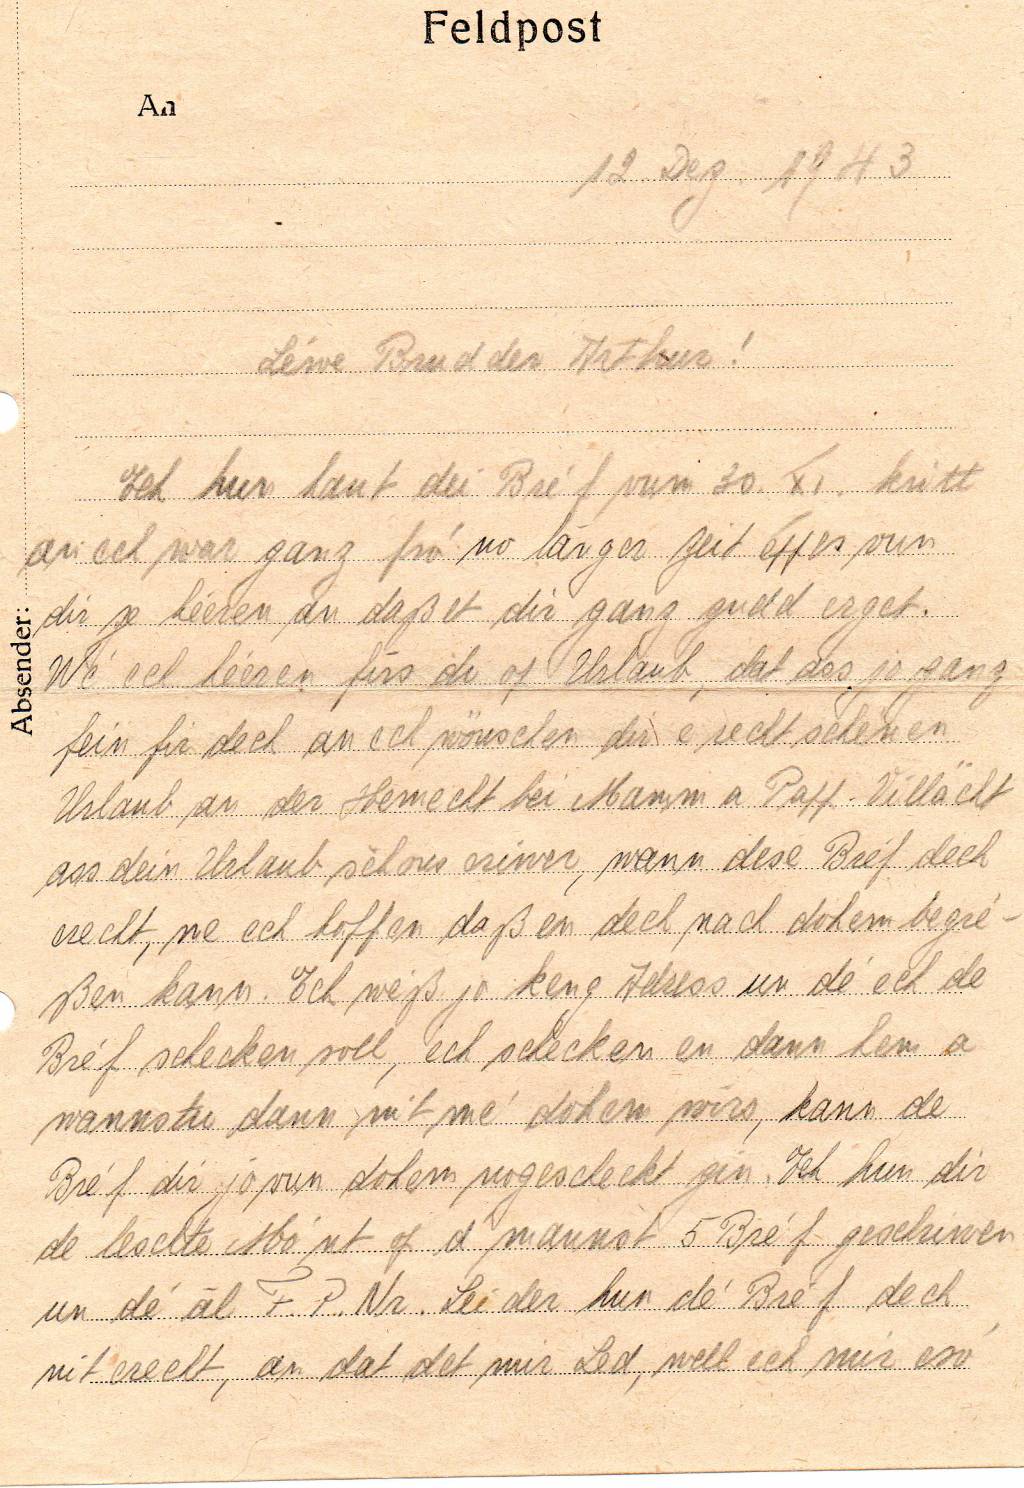 Feldpost
An
12. Dez. 1943
Léiwe Brudder Arthur!
Ech hun haut dei Bréf vum 30. XI. kritt
an ech war ganz fró no länger Zeit Eppes vun
dir ze héieren an daß et dir ganz gudd erget.
Wé ech héieren firs du op Urlaub, dat ass jo ganz
fein fir dech an ech wönschen dir e recht schéinen
Urlaub an der Hemecht bei Mamm a Papp. Villäicht
ass dein Urlaub schons eriwer, wann dese Bréf dech
erecht, me ech hoffen daß en dech nach dohem begré-
ßen kann. Ech weiß jo keng Adress un dé ech de
Bréf schecken soll, ech schecken en dann hem a
wannstu dann nit mé dohem wirs, kann de
Bréf dir jo vun dohem nogescheckt gin. Ech hun dir
de leschte Mónt op d' mannst 5 Bréf geschriwen
un dé äl F. P. Nr. Leider hun dé Bréf dech
nit erecht, an dat det mir Led, well ech mir esó
Absender: